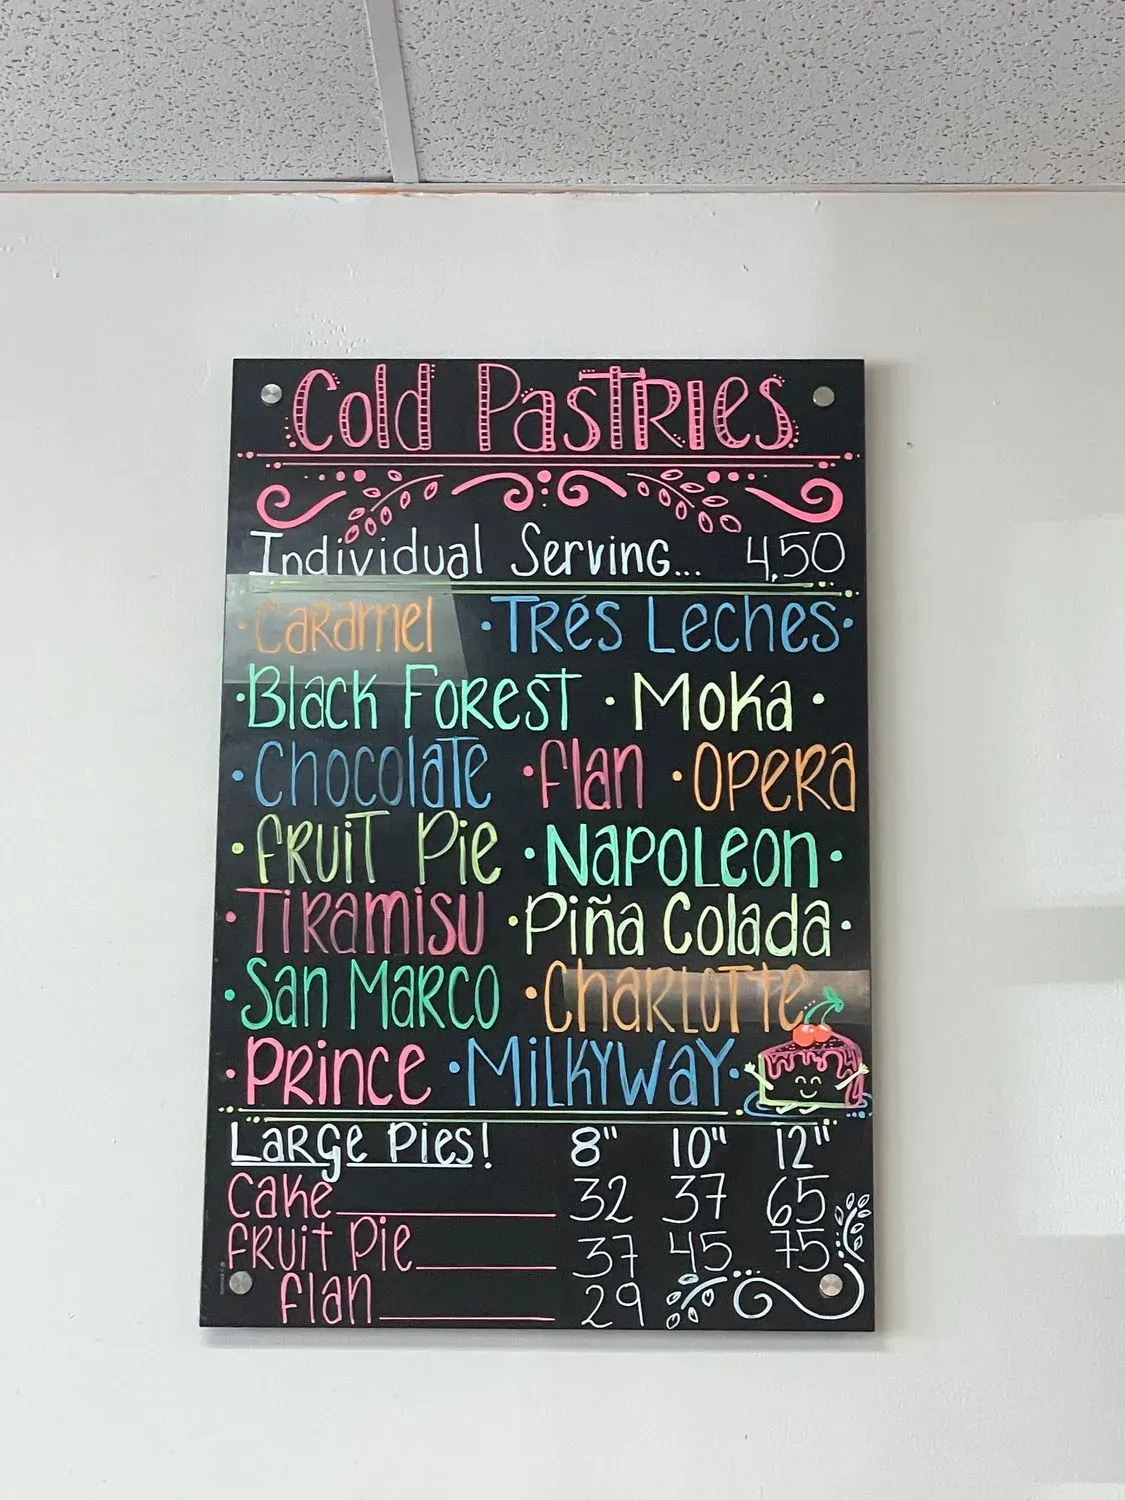 Cold Pastries
Individual Serving... 4.50
· Caramel · Trés Leches ·
· Black Forest · Moka ·
· Chocolate · Flan · Opera
· Fruit Pie · Napoleon ·
· Tiramisu · Piña Colada ·
· San Marco · Charlotte
· Prince · Milkyway ·
Large Pies! 8" 10" 12"
Cake 32 37 65
Fruit Pie 37 45 75
Flan 29